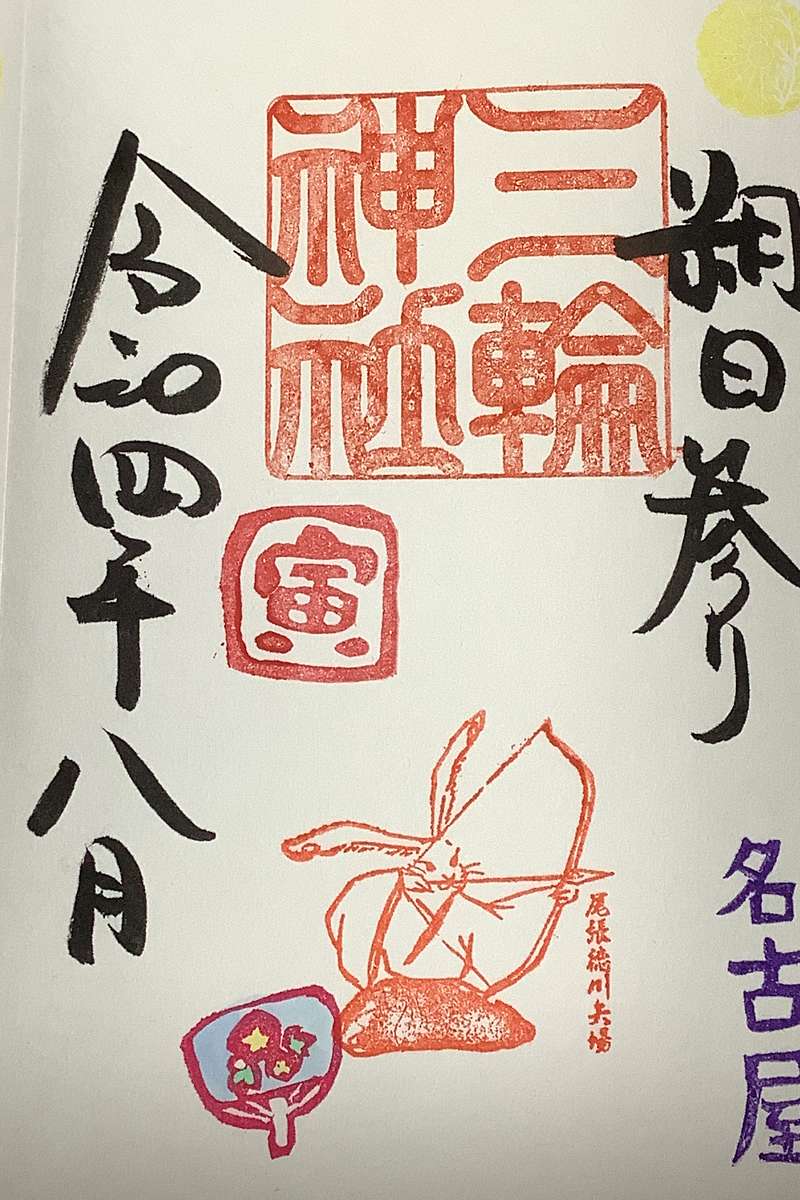 朔日参り
名古屋
三輪
神社
寅
尾張徳川兵場
令和四年
八月